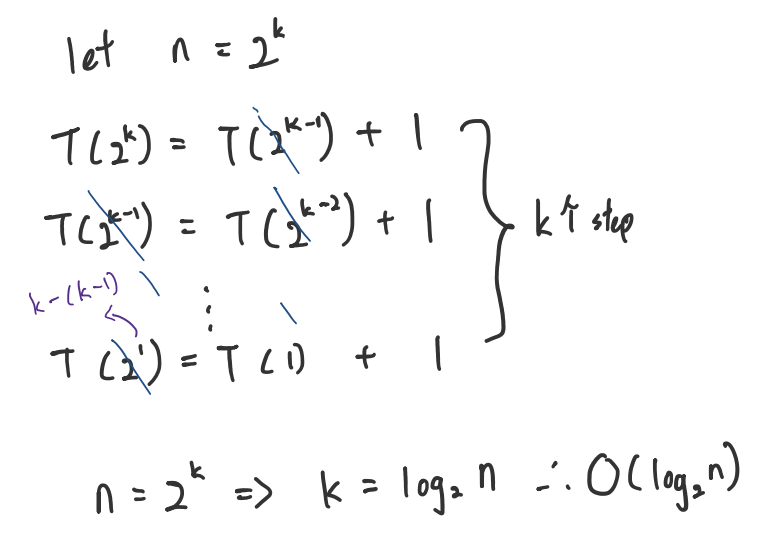 let n = 2^k
T(2^k) = T(2^{k-1}) + 1
T(2^{k-1}) = T(2^{k-2}) + 1
k个 step
k-(k-1)
⋮
T(2^1) = T(1) + 1
n = 2^k => k = log₂ n ∴ O(log₂n)